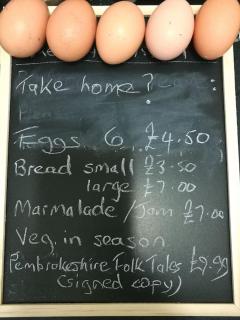 Take home?
Eggs 6 £4.50
Bread small £3.50
large £7.00
Marmalade / Jam £7.00
Veg. in season
Pembrokeshire Folk Tales £9.99
(signed copy)